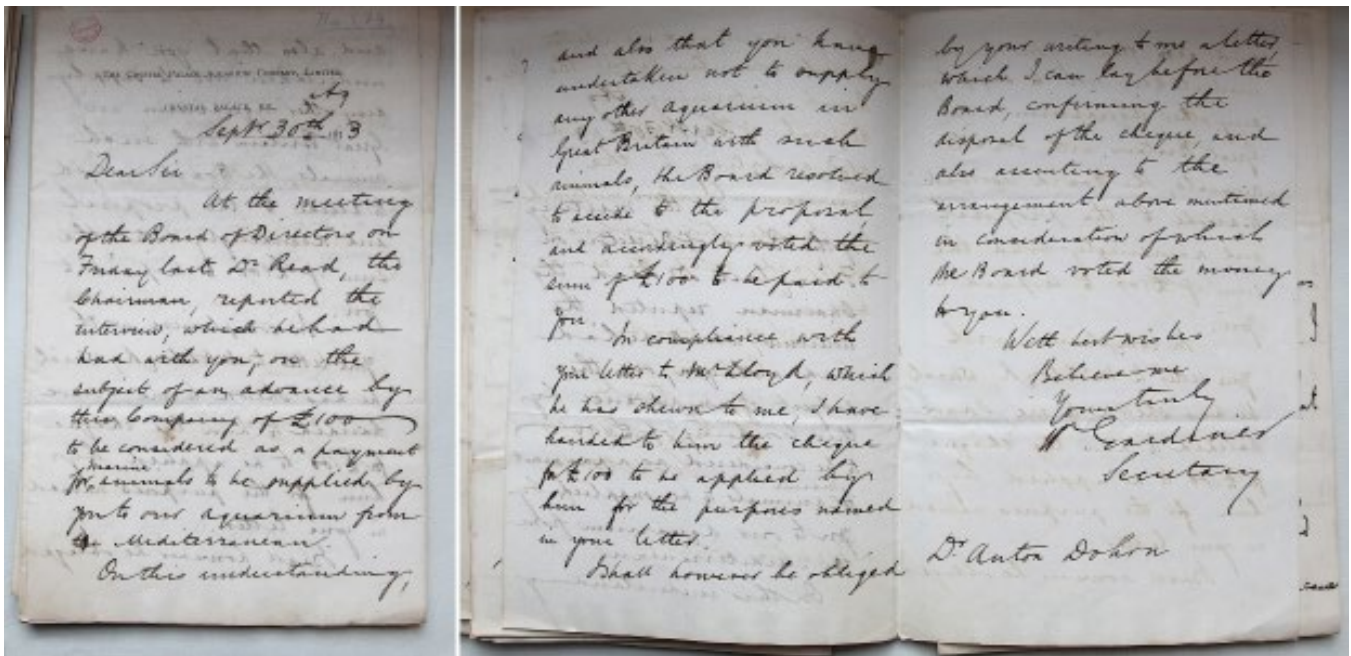 Septr 30th 3
Dear Sir
At the meeting
of the Board of Directors on
Friday last Dr Read, the
Chairman, reported the
interview, which he had
had with you, on the
subject of an advance by
this Company of £100
to be considered as a payment
for marine animals to be supplied by
you to our aquarium from
the Mediterranean.
On this understanding,
and also that you having
undertaken not to supply
any other aquarium in
Great Britain with such
animals, the Board resolved
to accede to the proposal
and accordingly voted the
sum of £100 to be paid to
you.
In compliance with
your letter to Mr Lloyd, which
he has shewn to me, I have
handed to him the cheque
for £100 to be applied by
him for the purposes named
in your letter.
I shall however be obliged
by your writing to me a letter,
which I can lay before the
Board, confirming the
disposal of the cheque, and
also assenting to the
arrangement above mentioned
in consideration of which
the Board voted the money
to you.
With best wishes
Believe me
Yours truly
W Gardiner
Secretary
Dr Anton Dohrn